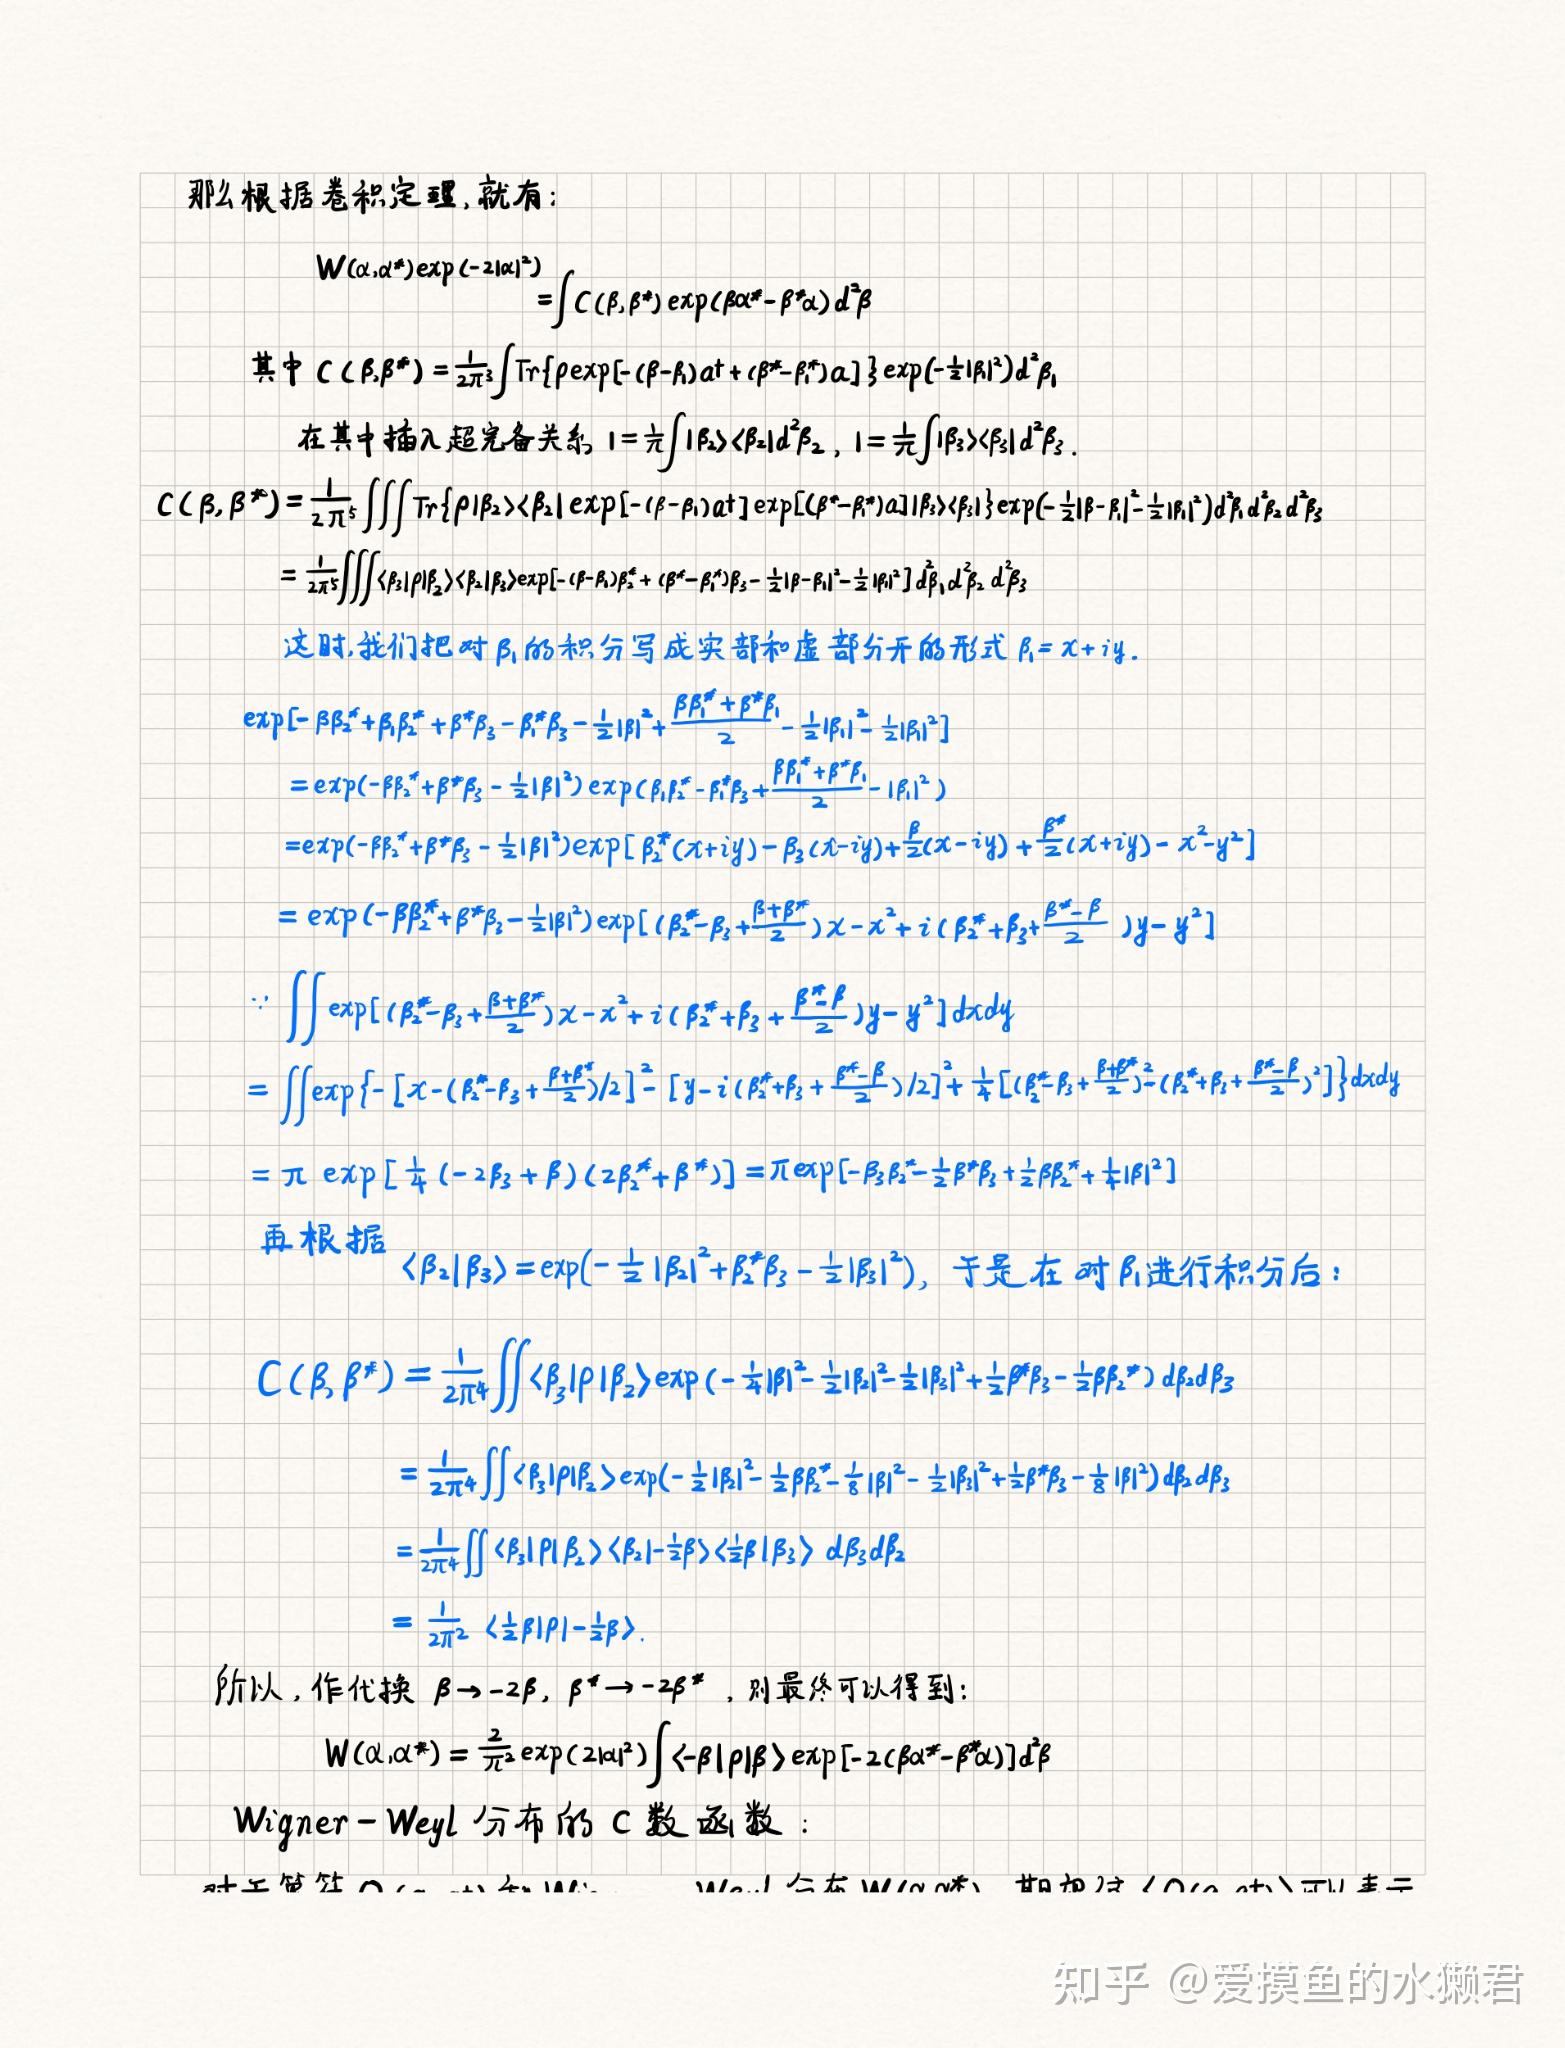 那么根据卷积定理,就有:
W(α,α*)exp(-2|α|²)
=∫C(β,β*)exp(βα*-β*α)d²β
其中 C(β,β*)=1/2π³∫Tr{ρexp[-(β-β₁)a†+(β*-β₁*)a]}exp(-½|β₁|²)d²β₁
在其中插入超完备关系 1=1/π∫|β₂><β₂|d²β₂, 1=1/π∫|β₃><β₃|d²β₃.
C(β,β*)=1/2π⁵∫∫∫Tr{ρ|β₂><β₂|exp[-(β-β₁)a†]exp[(β*-β₁*)a]|β₃><β₃|}exp(-½|β-β₁|²-½|β₁|²)d²β₁d²β₂d²β₃
=1/2π⁵∫∫∫<β₃|ρ|β₂><β₂|β₃>exp[-(β-β₁)β₂*+(β*-β₁*)β₃-½|β-β₁|²-½|β₁|²]d²β₁d²β₂d²β₃
这时,我们把对β₁的积分写成实部和虚部分开的形式 β₁=x+iy.
exp[-ββ₂*+β₁β₂*+β*β₃-β₁*β₃-½|β|²+(ββ₁*+β*β₁)/2-½|β₁|²-½|β₁|²]
=exp(-ββ₂*+β*β₃-½|β|²)exp(β₁β₂*-β₁*β₃+(ββ₁*+β*β₁)/2-|β₁|²)
=exp(-ββ₂*+β*β₃-½|β|²)exp[β₂*(x+iy)-β₃(x-iy)+β/2(x-iy)+β*/2(x+iy)-x²-y²]
=exp(-ββ₂*+β*β₃-½|β|²)exp[(β₂*-β₃+(β+β*)/2)x-x²+i(β₂*+β₃+(β*-β)/2)y-y²]
∵ ∫∫exp[(β₂*-β₃+(β+β*)/2)x-x²+i(β₂*+β₃+(β*-β)/2)y-y²]dxdy
=∫∫exp{-[x-(β₂*-β₃+(β+β*)/2)/2]²-[y-i(β₂*+β₃+(β*-β)/2)/2]²+¼[(β₂*-β₃+(β+β*)/2)²-(β₂*+β₃+(β*-β)/2)²]}dxdy
=π exp[¼(-2β₃+β)(2β₂*+β*)]=πexp[-β₃β₂*-½β*β₃+½ββ₂*+¼|β|²]
再根据
<β₂|β₃>=exp(-½|β₂|²+β₂*β₃-½|β₃|²), 于是在对β₁进行积分后:
C(β,β*)=1/2π⁴∫∫<β₃|ρ|β₂>exp(-¼|β|²-½|β₂|²-½|β₃|²+½β*β₃-½ββ₂*)dβ₂dβ₃
=1/2π⁴∫∫<β₃|ρ|β₂>exp(-½|β₂|²-½ββ₂*-⅛|β|²-½|β₃|²+½β*β₃-⅛|β|²)dβ₂dβ₃
=1/2π⁴∫∫<β₃|ρ|β₂><β₂|-½β><½β|β₃>dβ₃dβ₂
=1/2π² <½β|ρ|-½β>.
所以,作代换 β→-2β, β*→-2β*,则最终可以得到:
W(α,α*)=2/π² exp(2|α|²)∫<-β|ρ|β>exp[-2(βα*-β*α)]d²β
Wigner-Weyl 分布的 C 数函数:
知乎 @爱摸鱼的水獭君